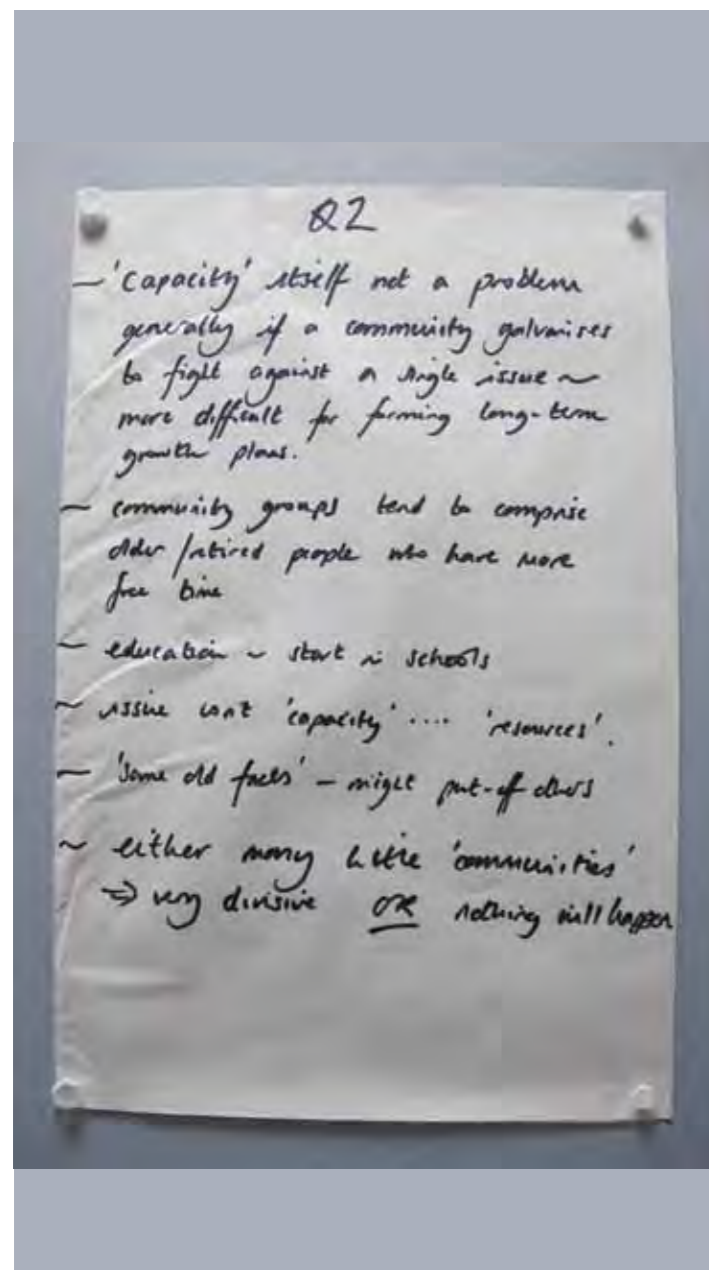 Q2
– 'Capacity' itself not a problem
generally if a community galvanises
to fight against a single issue ~
more difficult for forming long-term
growth plans.
~ community groups tend to comprise
older/retired people who have more
free time
~ education ~ start in schools
~ issue isn't 'capacity' .... 'resources'.
~ 'same old faces' – might put-off others
~ either many little 'communities'
⇒ very divisive OR nothing will happen